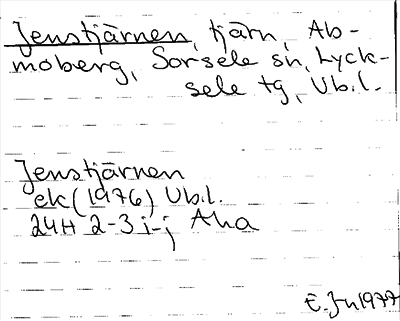 Jenstjärnen, tjärn, Ab-
moberg, Sorsele sn, Lyck-
sele tg, Vb.l.
Jenstjärnen
ek (1976) Vb.l.
24H 2-3 i-j Aha
E. Jn 1977